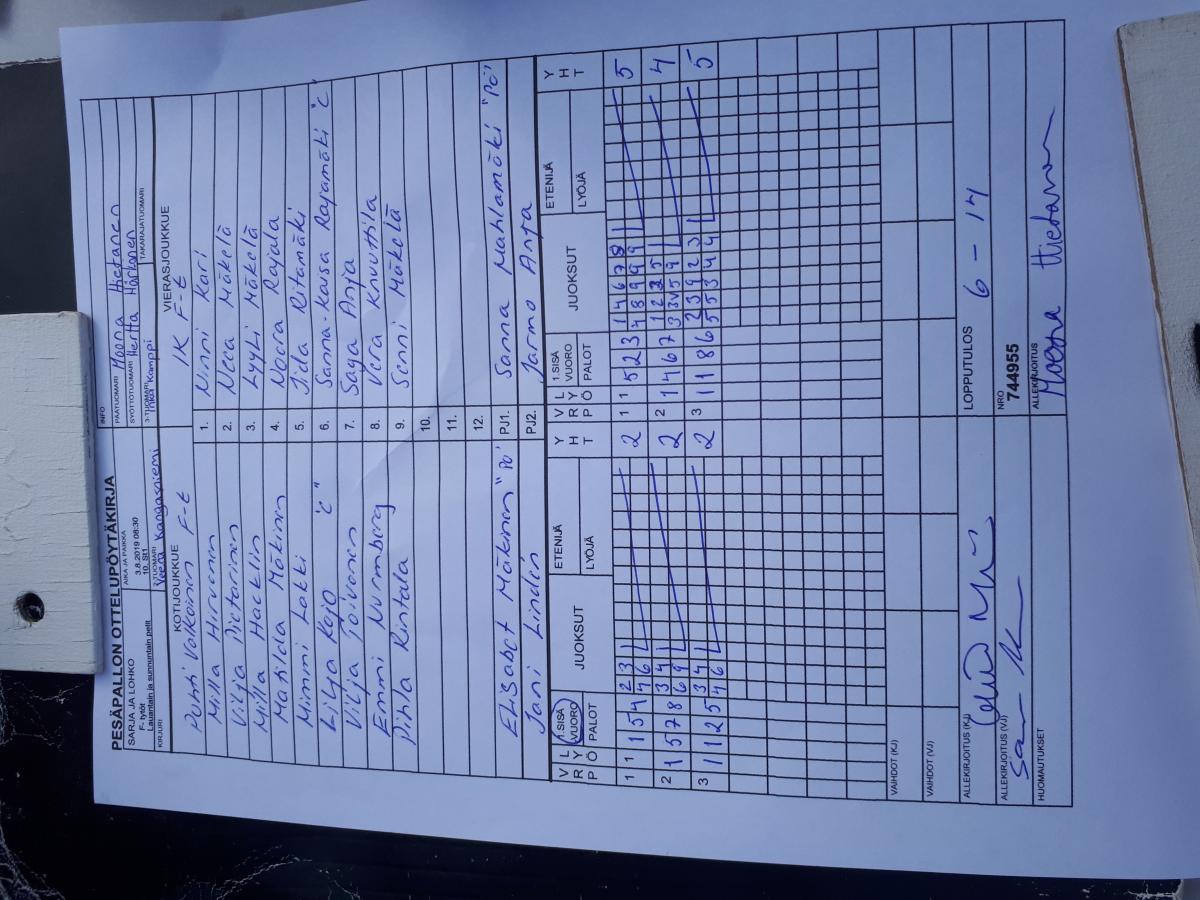 PESÄPALLON OTTELUPÖYTÄKIRJA
INFO
SARJA JA LOHKO
F- tytöt
Lauantain ja sunnuntain pelit
AIKA JA PAIKKA
3.8.2019 08:30
10. St1
PÄÄTUOMARI Moona Hietanen
SYÖTTÖTUOMARI Hertta Härkönen
KIRJURI
2-TUOMARI Veera Kangasniemi
3-TUOMARI Inka Kamppi
TAKARAJATUOMARI
KOTIJOUKKUE
VIERASJOUKKUE
Puhti Valkoinen F-t
IK F-t
Milla Hirvonen 1. Ninni Kari
Vilja Pietarinen 2. Neea Mäkelä
Milla Hacklin 3. Lyyli Mäkelä
Matilda Mäkinen 4. Noora Rajala
Mimmi Lakki 5. Iida Ritamäki
Lilja Rajo "c" 6. Sanna-Kaisa Rajamäki "c"
Vilja Toivonen 7. Saga Anja
Emmi Nurmberg 8. Vera Knuuttila
Pihla Rintala 9. Senni Mäkelä
10.
11.
12.
Elisabet Mäkinen "Pö" PJ1. Sanna Mahlamäki "Pö"
Jani Linden PJ2. Jarmo Anja
V R P L Y Ö 1.SISÄ VUORO PALOT JUOKSUT ETENIJÄ LYÖJÄ Y H T V R P L Y Ö 1.SISÄ VUORO PALOT JUOKSUT ETENIJÄ LYÖJÄ Y H T
1 1 1 5 4 2 3 2 1 1 5 2 3 1 4 6 7 8 5
4 6 4 8 9 9 9
2 1 5 7 8 3 4 2 2 1 4 6 7 1 2 2 5 4
6 9
3 1 1 2 5 3 4 2 3 1 1 8 6 2 3 9 2 3 5
4 6 5 5 3 4 4
VAIHDOT (KJ)
VAIHDOT (VJ)
ALLEKIRJOITUS (KJ)
LOPPUTULOS 6 - 14
ALLEKIRJOITUS (VJ)
NRO
744955
HUOMAUTUKSET
ALLEKIRJOITUS
Moona Hietanen